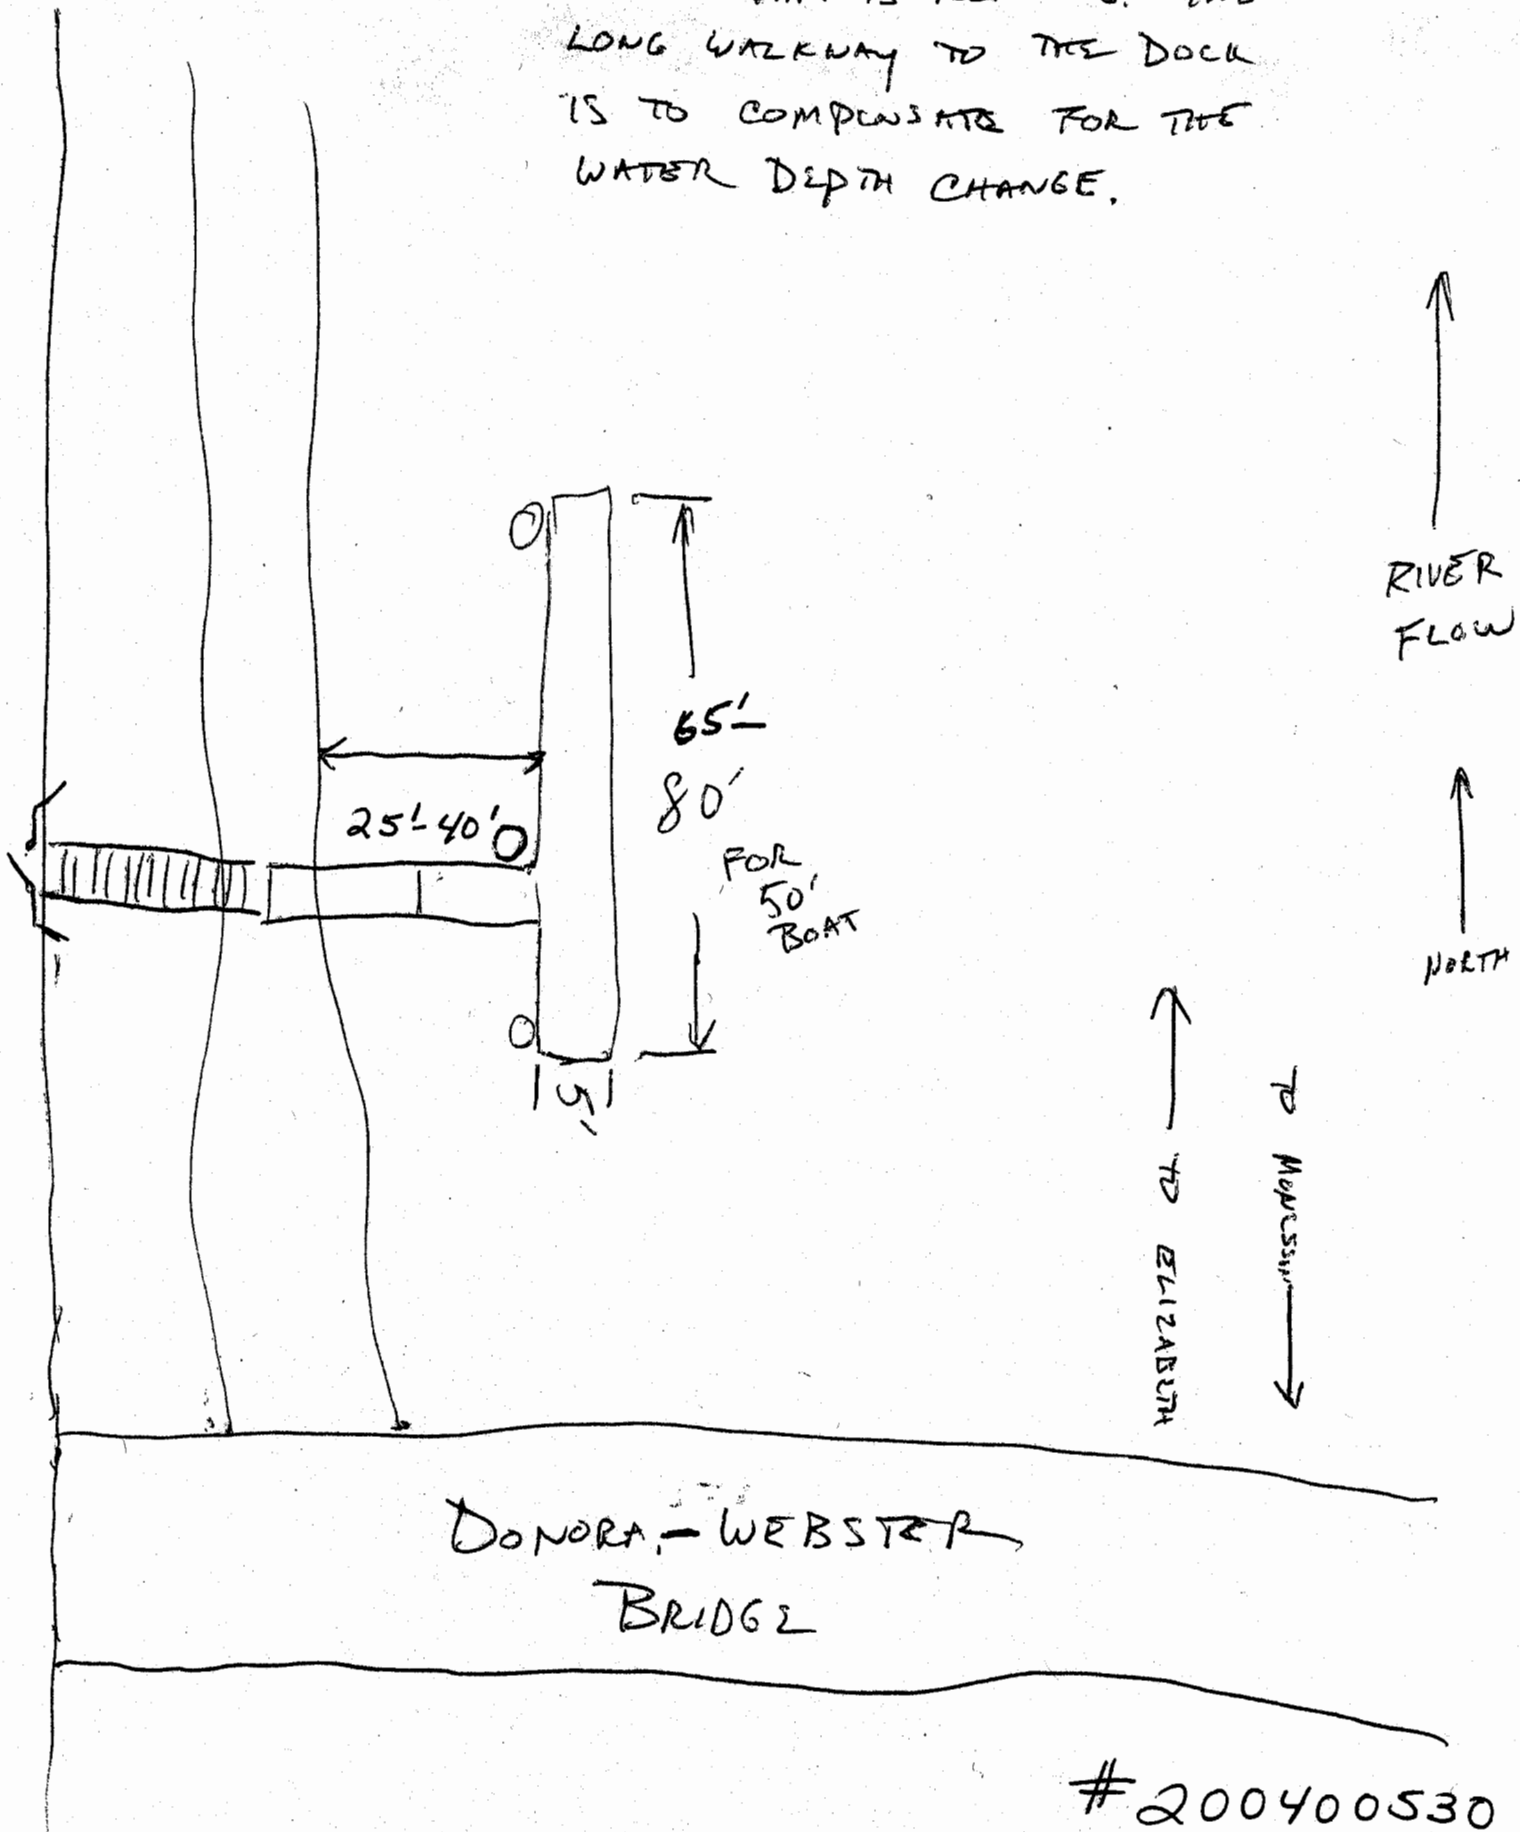 LONG WALKWAY TO THE DOCK
IS TO COMPENSATE FOR THE
WATER DEPTH CHANGE.
RIVER
FLOW
65'-
80'
25'-40'
FOR
50'
BOAT
NORTH
5'
TO ELIZABETH
TO MONESSEN
DONORA-WEBSTER
BRIDGE
#200400530